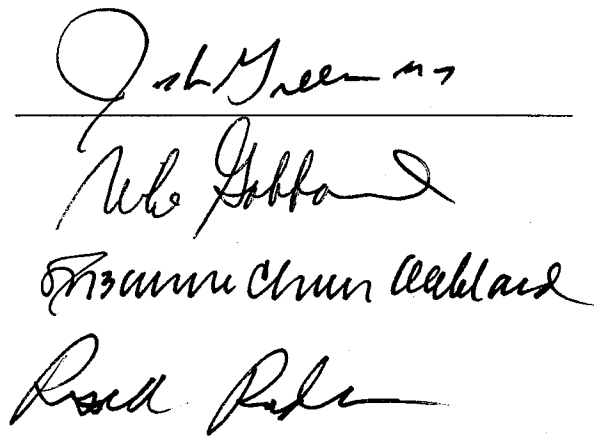 Josh Green MD
Mike Gabbard
Suzanne Chun Oakland
Russell